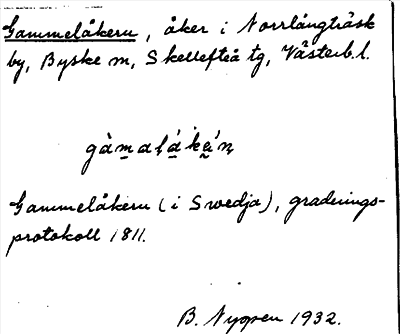 Gammelåkern, åker i Norrlångträsk
by, Byske sn, Skellefteå tg, Västerb. l.
gàmaḷá̱kǽ̰ṇ
Gammelåkern (i Swedja), graderings-
protokoll 1811.
B. Nygren 1932.